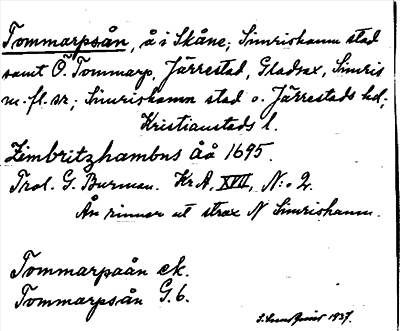 Tommarpsån, å i Skåne; Simrishamn stad
samt Ö. Tommarp, Järrestad, Gladsax, Simris
m. fl. sr; Simrishamn stad o. Järrestads hd,
Kristianstads l.
Zimbritzhambns åå 1695.
Trol. G. Burman. Kr A, XVII, N:o 2.
Ån rinner ut strax N Simrishamn.
Tommarpaån ek.
Tommarpsån G. 6.
1937.